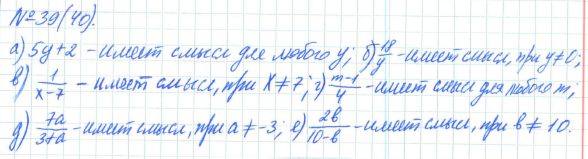 №39(40).
а) 5y+2 – имеет смысл для любого y; б) 18/y – имеет смысл, при y≠0;
в) 1/(x-7) – имеет смысл, при x≠7; г) (m-1)/4 – имеет смысл для любого m;
д) 7a/(3+a) – имеет смысл, при a≠-3; е) 2b/(10-b) – имеет смысл, при b≠10.